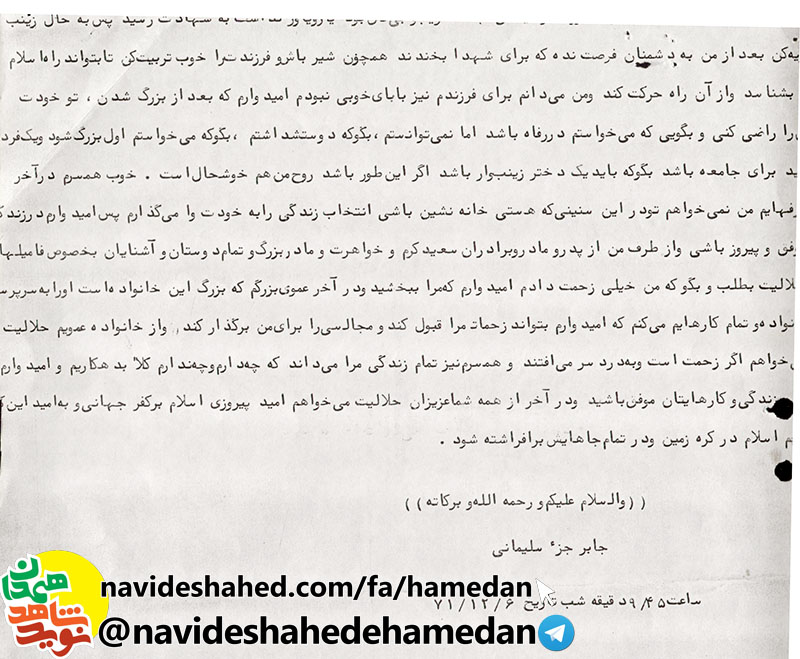 است به شهادت رسید پس به حال زینب
یه‌کن بعد از من به دشمنان فرصت نده که برای شهدا بخندند همچون شیر باش و فرزندت را خوب تربیت کن تا بتواند راه اسلام
بشناسد و از آن راه حرکت کند و من می دانم برای فرزندم نیز بابای خوبی نبودم امید وارم که بعد از بزرگ شدن ، تو خودت
را راضی کنی و بگویی که می خواستم در رفاه باشد اما نمی توانستم ، بگو که دوستش داشتم ، بگو که می خواستم اول بزرگ شود و یک فرد
ید برای جامعه باشد بگو که باید یک دختر زینب وار باشد اگر این طور باشد روح من هم خوشحال است . خوب همسرم در آخر
رفهایم من نمی خواهم تو در این سنینی که هستی خانه نشین باشی انتخاب زندگی را به خودت وا می گذارم پس امید وارم در زندگ
وفق و پیروز باشی و از طرف من از پدر و مادر و برادران سعید کرم و خواهرت و مادر بزرگ و تمام دوستان و آشنایان بخصوص فامیلها
حلالیت بطلب و بگو که من خیلی زحمت دادم امید وارم که مرا ببخشید و در آخر عموی بزرگم که بزرگ این خانواده است او را به سرپرس
انواده و تمام کارهایم می کنم که امید وارم بتواند زحمات مرا قبول کند و مجالسی را برای من برگذار کند ، و از خانواده عمویم حلالیت
ی خواهم اگر زحمت است و به درد سر می افتند و همسرم نیز تمام زندگی مرا می داند که چه دارم و چه ندارم کلا بدهکاریم و امید وارم
زندگی و کارهایتان موفق باشید و در آخر از همه شما عزیزان حلالیت می خواهم امید پیروزی اسلام بر کفر جهانی و به امید این ک
م اسلام در کره زمین و در تمام جاهایش برافراشته شود .
((والسلام علیکم و رحمه الله و برکاته))
جابر جزء سلیمانی
ساعت ۹/۴۵ دقیقه شب تاریخ ۷۱/۱۲/۶
نوید شاهد همدان
navideshahed.com/fa/hamedan
@navideshahedehamedan